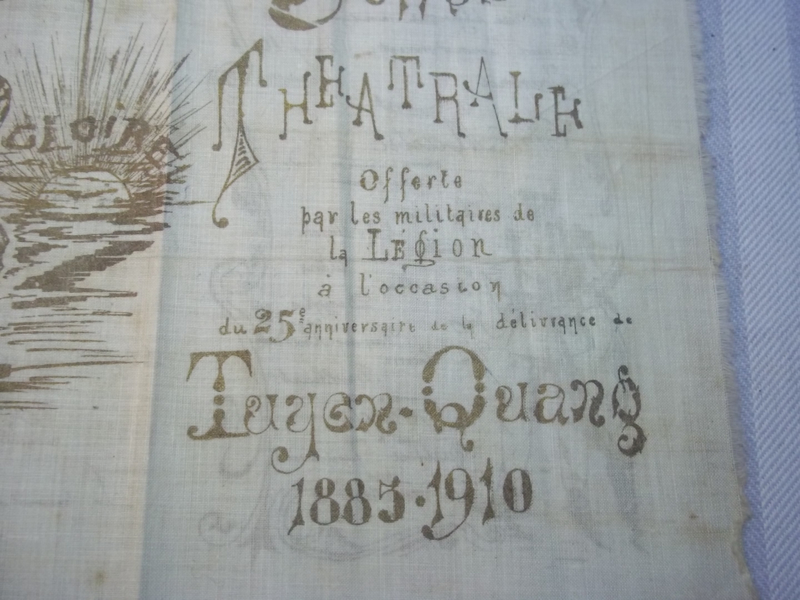 THEATRALE
GLOIRE
Offerte
par les militaires de
la Légion
à l'occasion
du 25e anniversaire de la délivrance de
Tuyen-Quang
1885·1910